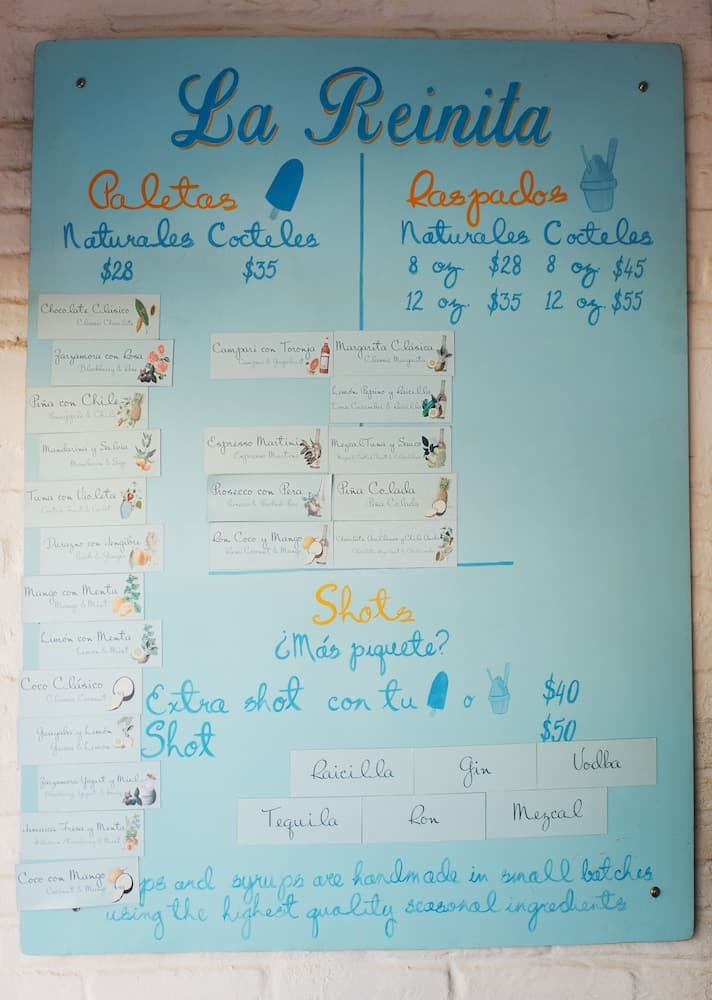 La Reinita
Paletas
Naturales Cocteles
$28 $35
Raspados
Naturales Cocteles
8 oz. $28 8 oz. $45
12 oz. $35 12 oz. $55
Chocolate Clásico
Classic Chocolate
Zarzamora con Rosa
Blackberry & Rose
Piña con Chile
Pineapple & Chile
Mandarina y Salvia
Mandarin & Sage
Tuna con Violeta
Cactus Fruit & Violet
Durazno con Jengibre
Peach & Ginger
Mango con Menta
Mango & Mint
Limón con Menta
Limon & Mint
Coco Clásico
Classic Coconut
Guayaba y Limón
Guava & Limon
Zarzamora Yogurt y Miel
Jamaica Fresa y Menta
Coco con Mango
Coconut & Mango
Campari con Toronja
Campari & Grapefruit
Margarita Clásica
Classic Margarita
Limón Pepino y Raicilla
Lime Cucumber & Raicilla
Espresso Martini
Espresso Martini
Mezcal Tuna y
Prosecco con Pera
Piña Colada
Piña Colada
Ron Coco y Mango
Rum Coconut & Mango
Chocolate
Shots
¿Más piquete?
Extra shot con tu o $40
Shot $50
Raicilla Gin Vodba
Tequila Ron Mezcal
ps and syrups are handmade in small batches
using the highest quality seasonal ingredients